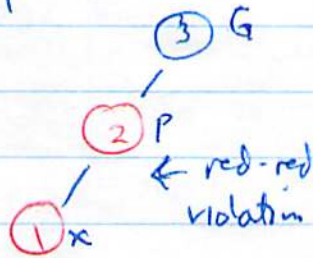 3 G
2 P
← red-red
violation
1 x